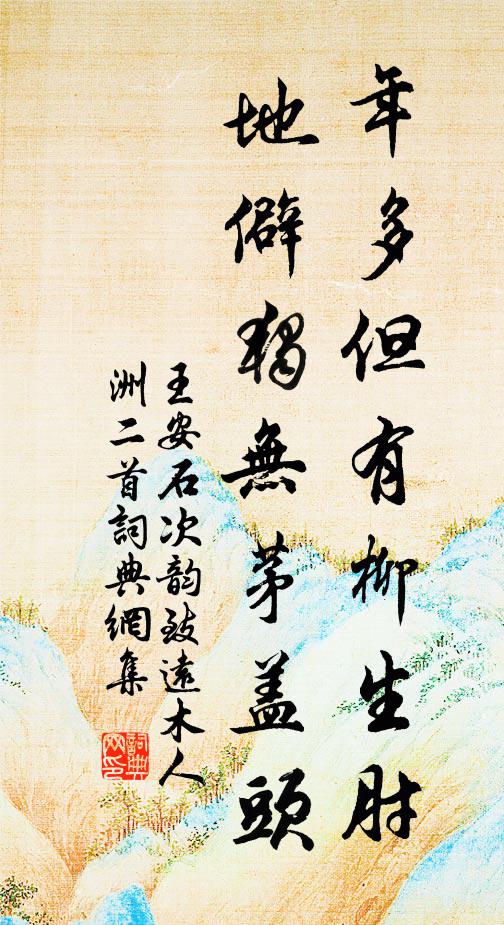 年多但有柳生肘
地僻獨無茅盖頭
王安石次韵致遠木人
洲二首詞典網集
詞典网印